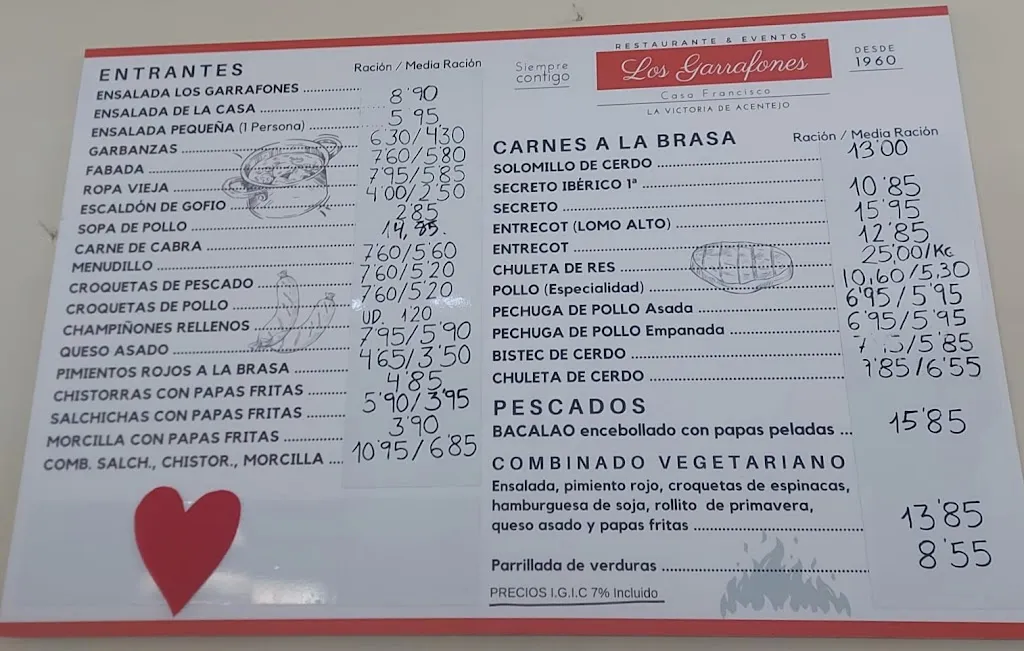 ENTRANTES
Ración / Media Ración
ENSALADA LOS GARRAFONES
ENSALADA DE LA CASA
ENSALADA PEQUEÑA (1 Persona)
GARBANZAS
FABADA
ROPA VIEJA
ESCALDÓN DE GOFIO
SOPA DE POLLO
CARNE DE CABRA
MENUDILLO
CROQUETAS DE PESCADO
CROQUETAS DE POLLO
CHAMPIÑONES RELLENOS
QUESO ASADO
PIMIENTOS ROJOS A LA BRASA
CHISTORRAS CON PAPAS FRITAS
SALCHICHAS CON PAPAS FRITAS
MORCILLA CON PAPAS FRITAS
COMB. SALCH., CHISTOR., MORCILLA
8'90
5'95
6'30/4'30
7'60/5'80
7'95/5'85
4'00/2'50
2'85
14,85.
7'60/5'60
7'60/5'20
7'60/5'20
UD. 1'20
7'95/5'90
4'65/3'50
4'85
5'90/3'95
3'90
10'95/6'85
Siempre
contigo
RESTAURANTE & EVENTOS
Los Garrafones
Casa Francisco
LA VICTORIA DE ACENTEJO
DESDE
1960
CARNES A LA BRASA
Ración / Media Ración
SOLOMILLO DE CERDO
SECRETO IBÉRICO 1ª
SECRETO
ENTRECOT (LOMO ALTO)
ENTRECOT
CHULETA DE RES
POLLO (Especialidad)
PECHUGA DE POLLO Asada
PECHUGA DE POLLO Empanada
BISTEC DE CERDO
CHULETA DE CERDO
13'00
10'85
15'95
12'85
25,00/KG
10,60/5,30
6'95/5'95
6'95/5'95
/5'85
7'85/6'55
PESCADOS
BACALAO encebollado con papas peladas ... 15'85
COMBINADO VEGETARIANO
Ensalada, pimiento rojo, croquetas de espinacas,
hamburguesa de soja, rollito de primavera,
queso asado y papas fritas 13'85
Parrillada de verduras 8'55
PRECIOS I.G.I.C 7% Incluido